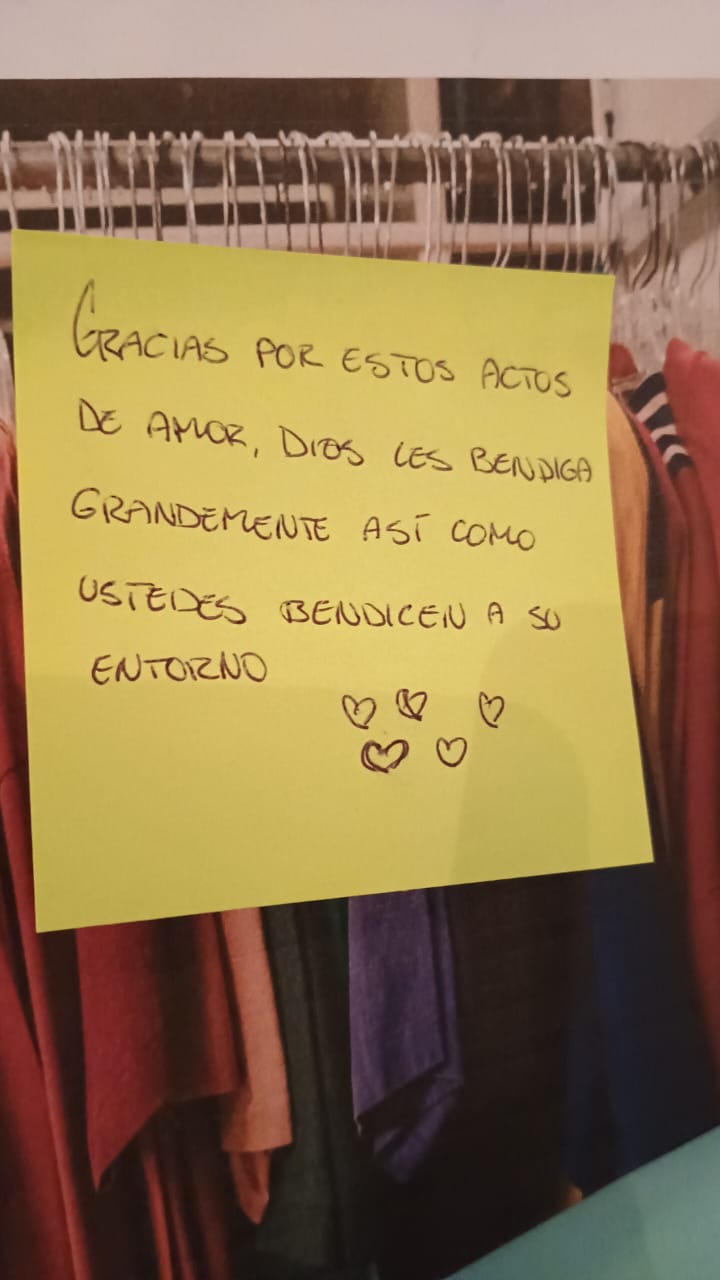 GRACIAS POR ESTOS ACTOS
DE AMOR, DIOS LES BENDIGA
GRANDEMENTE ASÍ COMO
USTEDES BENDICEN A SU
ENTORNO